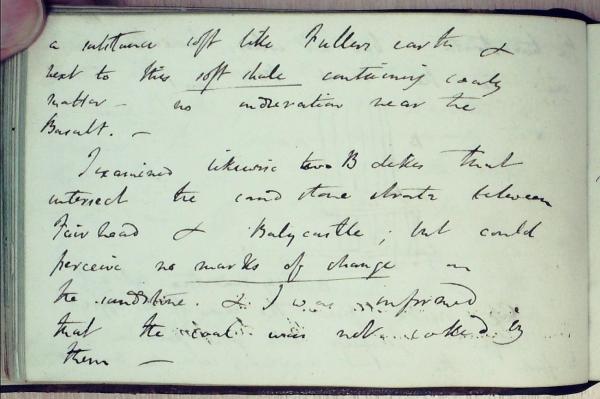 a substance soft like Fullers earth &
next to this soft shale containing coaly
matter – no induration near the
Basalt. –
I examined likewise two B dikes that
intersect the sand stone strata between
Fairhead & Balycastle; but could
perceive no marks of change on
the sandstone. & I was informed
that the coal was not coked by
them –